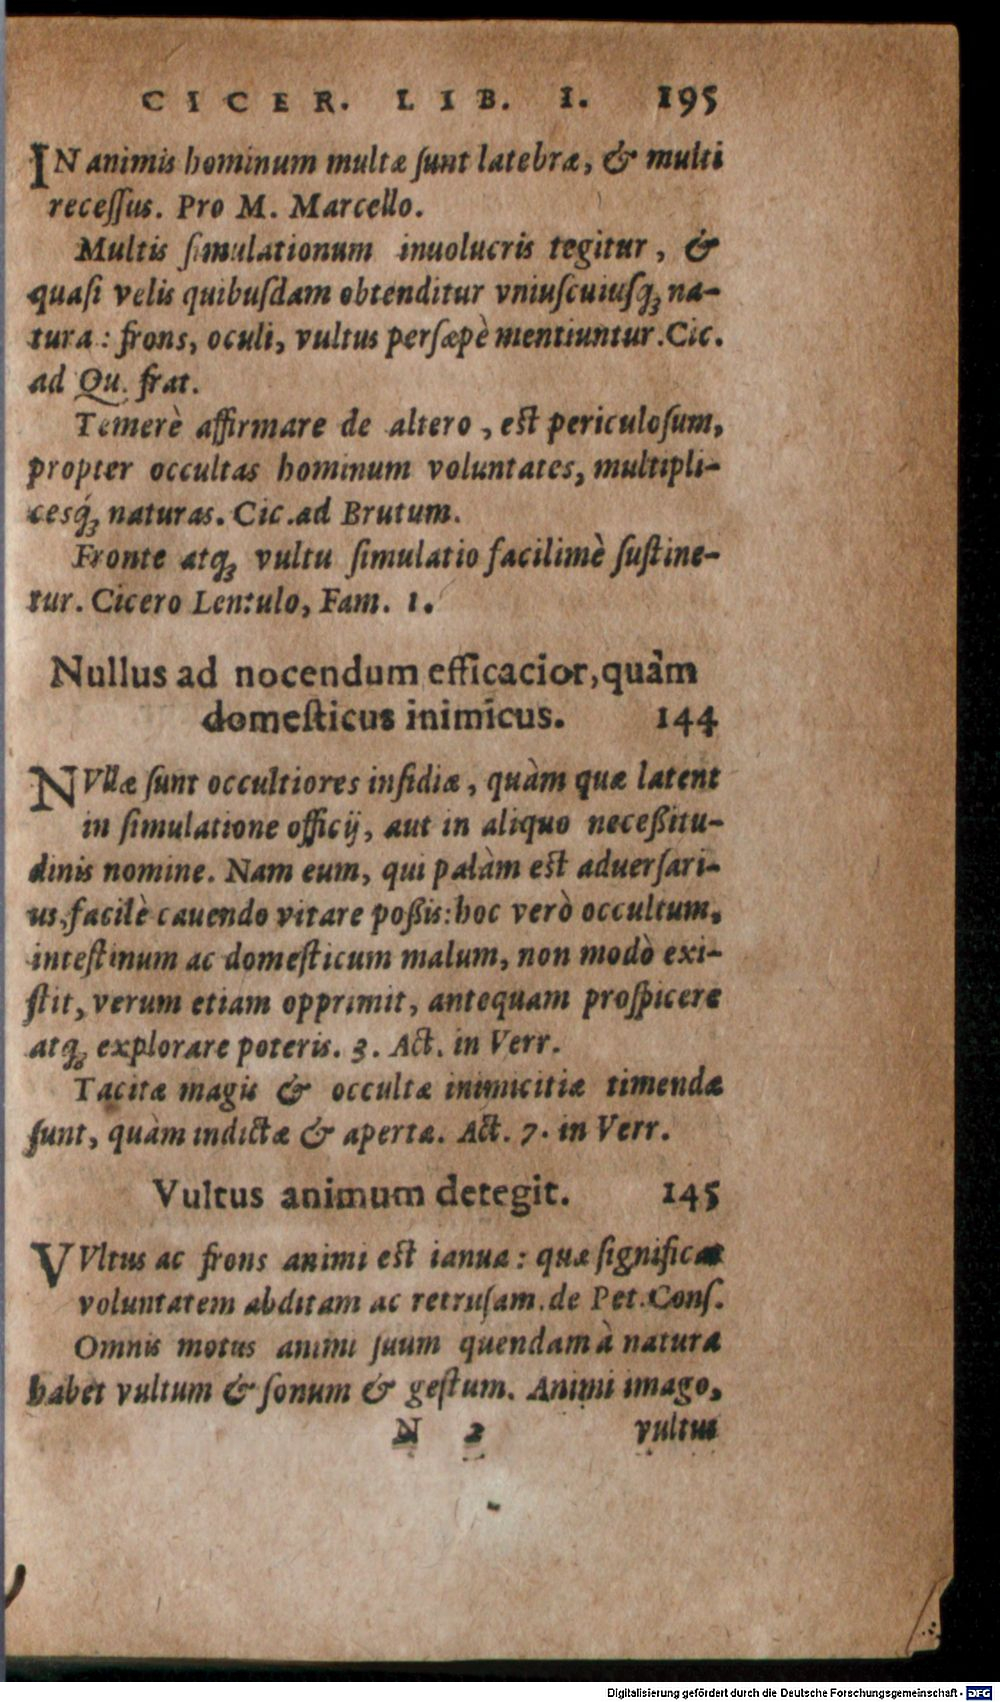 CICER. LIB. I. 195
IN animis hominum multæ ſunt latebræ, & multi
receſſus. Pro M. Marcello.
Multis ſimulationum inuolucris tegitur, &
quaſi velis quibuſdam obtenditur vniuſcuiuſq́; na-
tura: frons, oculi, vultus perſæpè mentiuntur. Cic.
ad Qu. frat.
Temerè affirmare de altero, est periculoſum,
propter occultas hominum voluntates, multipli-
cesq́; naturas. Cic. ad Brutum.
Fronte atq; vultu ſimulatio facilimè ſuſtine-
tur. Cicero Lentulo, Fam. 1.
Nullus ad nocendum efficacior, quàm
domeſticus inimicus. 144
NVllæ ſunt occultiores inſidiæ, quàm quæ latent
in ſimulatione officij, aut in aliquo neceßitu-
dinis nomine. Nam eum, qui palàm est aduerſari-
us, facilè cauendo vitare poßis: hoc verò occultum,
inteſtinum ac domeſticum malum, non modò exi-
ſtit, verum etiam opprimit, antequam proſpicere
atq; explorare poteris. 3. Act. in Verr.
Tacitæ magis & occultæ inimicitiæ timendæ
ſunt, quàm indictæ & apertæ. Act. 7. in Verr.
Vultus animum detegit. 145
VVltus ac frons animi est ianua: quæ ſignificat
voluntatem abditam ac retruſam. de Pet. Conſ.
Omnis motus animi ſuum quendam à natura
habet vultum & ſonum & geſtum. Animi imago,
N 2 vultus
Digitalisierung gefördert durch die Deutsche Forschungsgemeinschaft - DFG